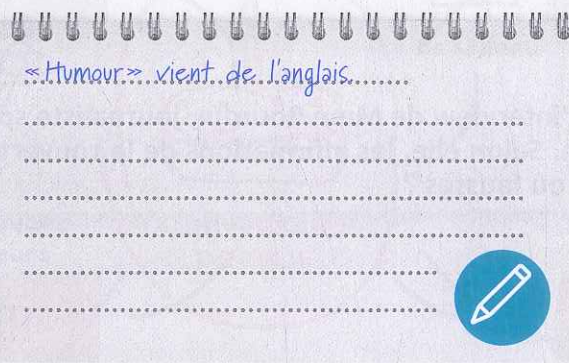 «Humour» vient de l'anglais.